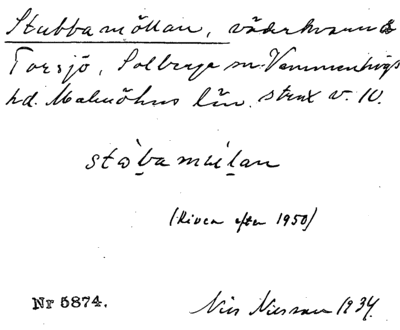 Stubbamöllan, väderkvarn
Torsjö, Solberga sn. Vemmenhögs
hd. Malmöhus län. strax v. 10.
stòbamúlan
(Riven efter 1950)
Nr 5874.
Nils Nilsson 1934.